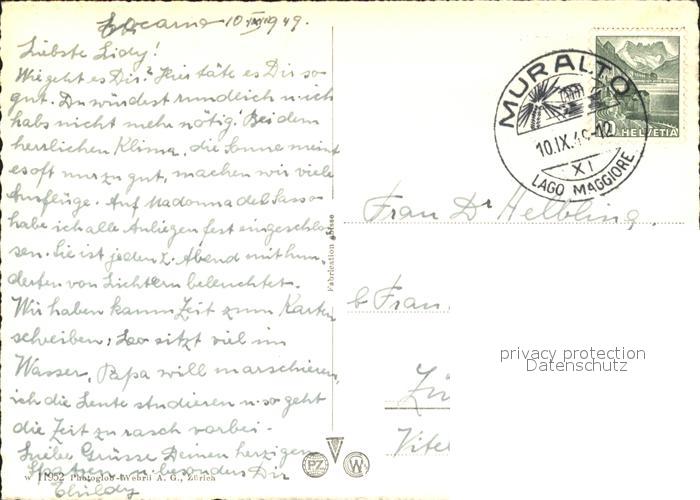 Locarno 10. IX. 1949.
Liebste Lidy!
Wie geht es Dir? Hier täte es Dir so
gut. Du würdest rundlich u. ich
habs nicht mehr nötig! Bei dem
herrlichen Klima, die Sonne meint
es oft nur zu gut, machen wir viele
Ausflüge. Auf Madonna del Sasso
habe ich alle Anliegen fest eingeschlos-
sen. Sie ist jeden 2. Abend mit hun-
derten von Lichtern beleuchtet.
Wir haben kaum Zeit zum Karten
schreiben; Leo sitzt viel im
Wasser, Papa will marschieren,
ich die Leute studieren u. so geht
die Zeit zu rasch vorbei.
Liebe Grüsse Deinen herzigen
Spatzen u. besonders Dir
W 11952 Photoglob-Wehrli A. G., Zürich
Fabrication suisse
PZ
W
HELVETIA
MURALTO
10.IX.49-12
XI
LAGO MAGGIORE
Frau Dr Helbling.
b Frau
Zü
Vitel
privacy protection
Datenschutz